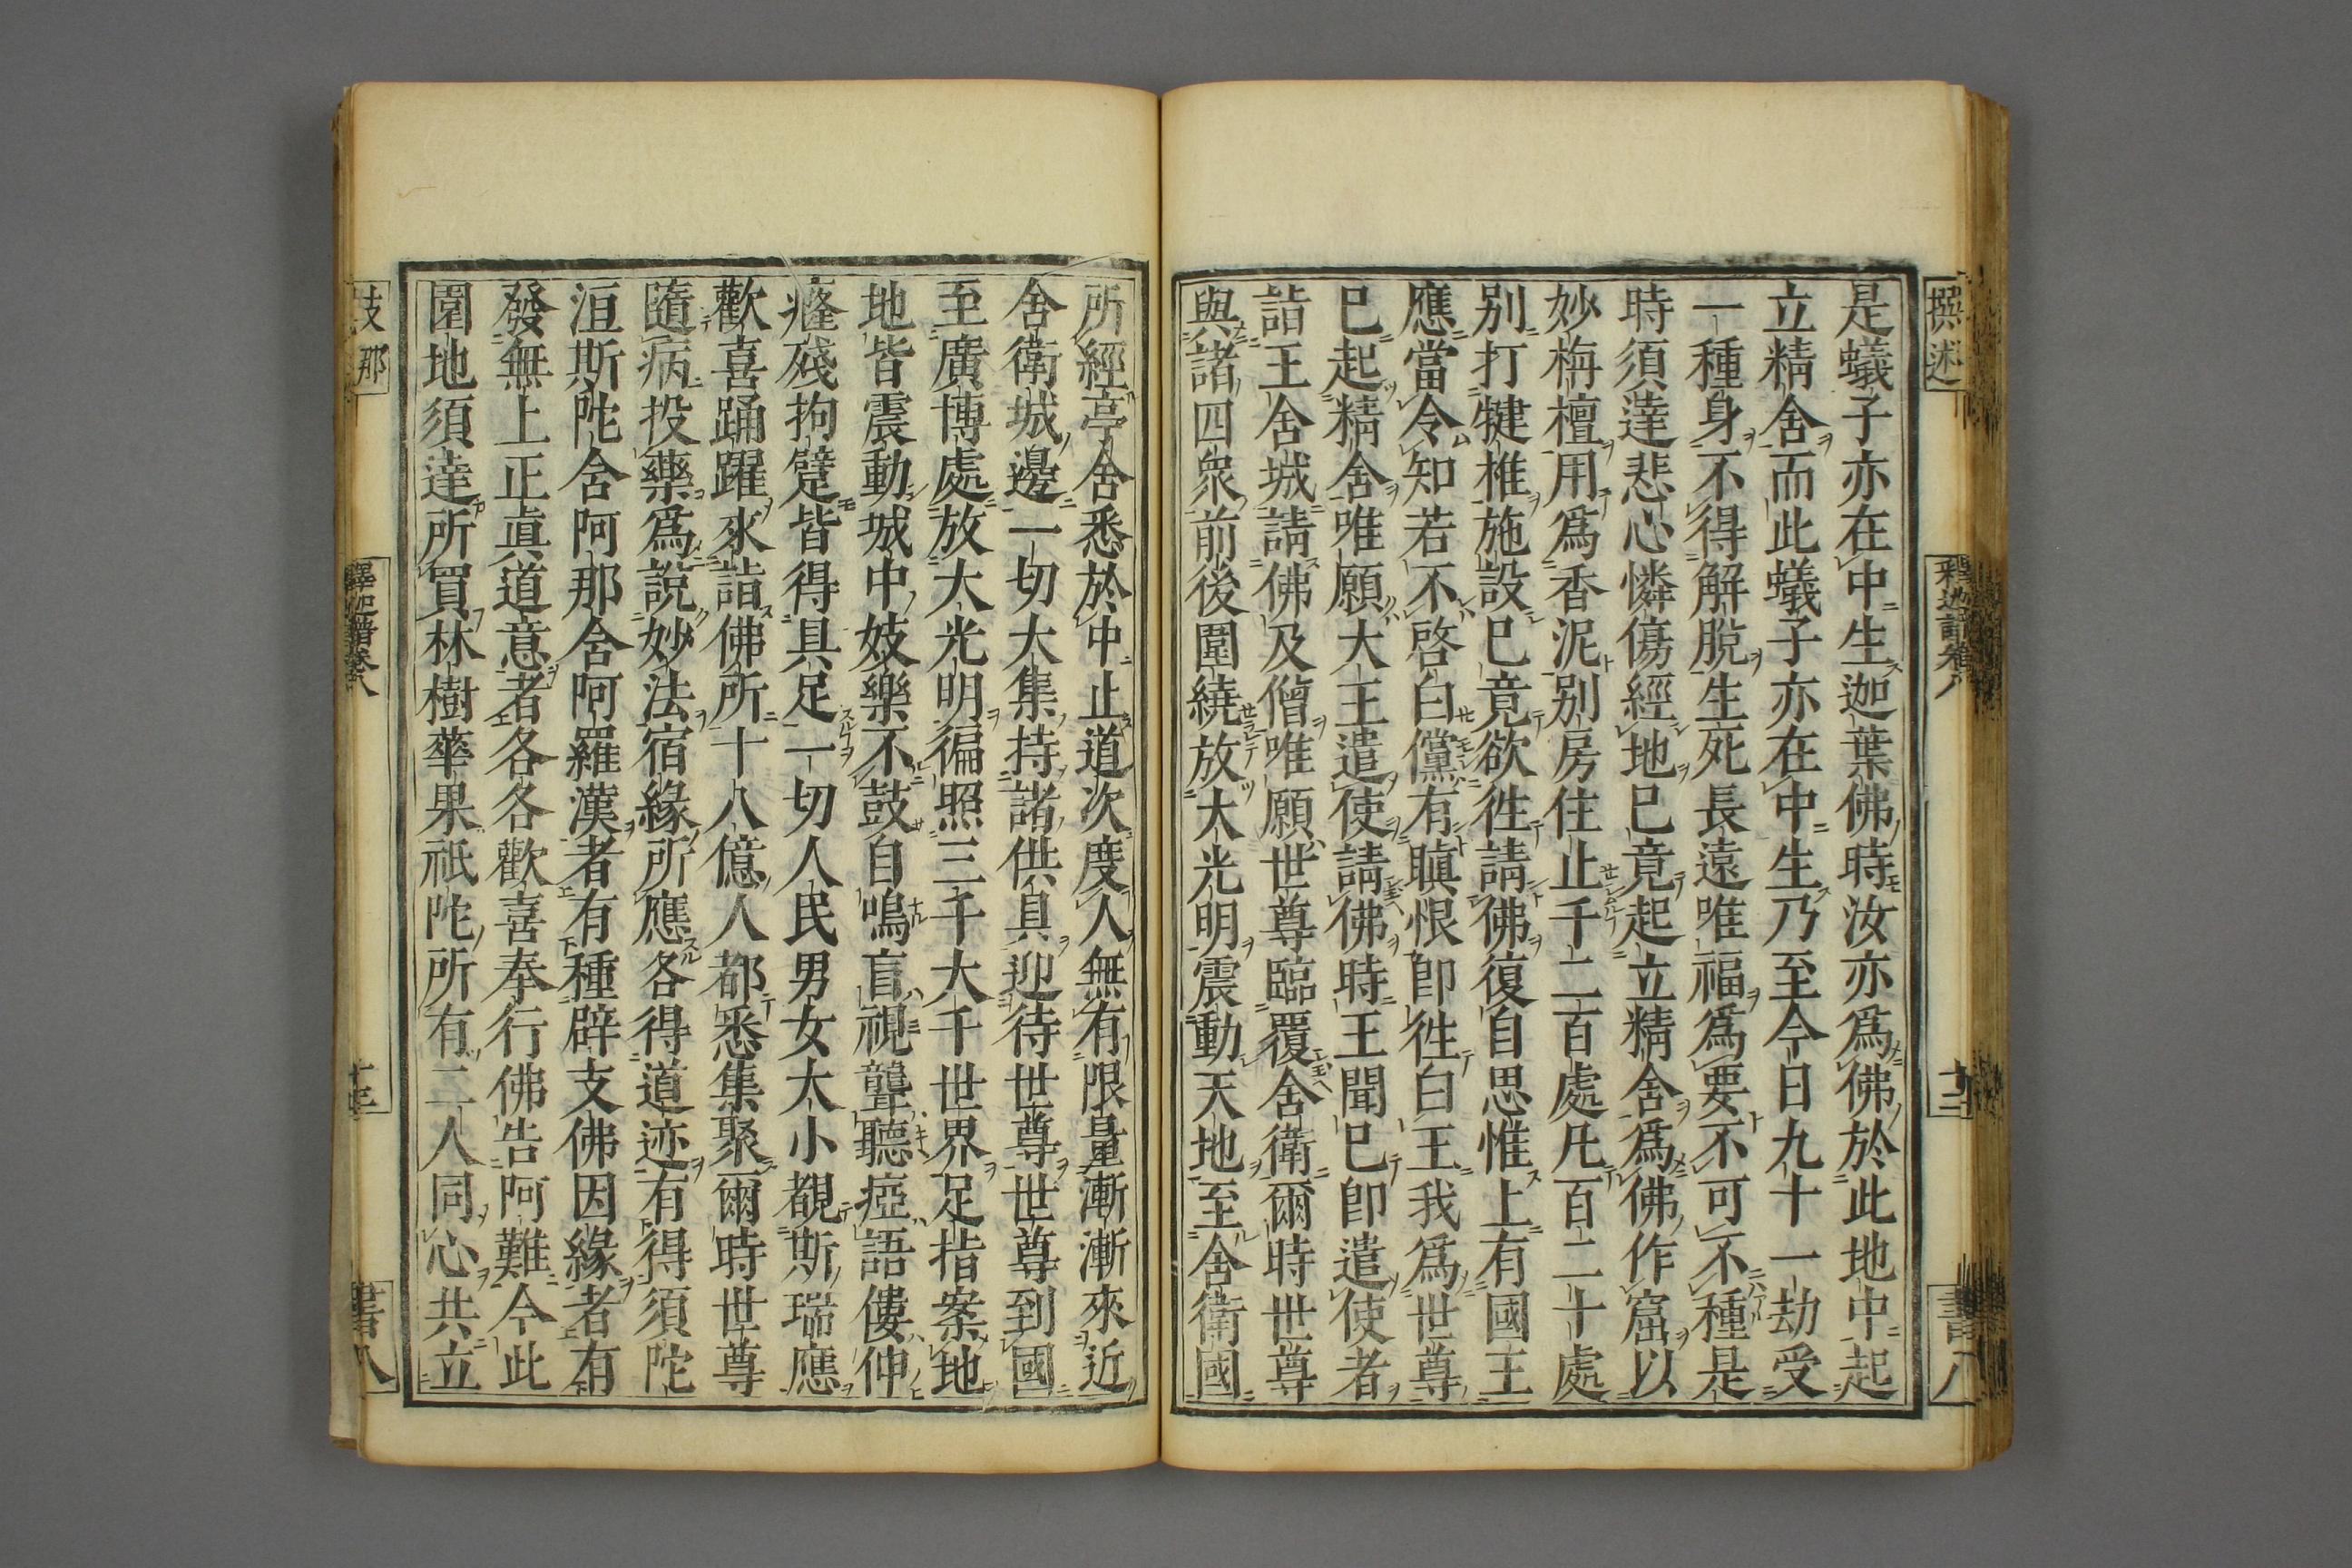 撰述
釋迦譜卷八
十二
書八
是蟻子亦在中生迦葉佛時汝亦爲佛於此地中起
立精舍而此蟻子亦在中生乃至今日九十一劫受
一種身不得解脫生死長遠唯福爲要不可不種是
時須達悲心憐傷經地已竟起立精舍爲佛作窟以
妙栴檀用爲香泥別房住止千二百處凡百二十處
別打犍椎施設已竟欲往請佛復自思惟上有國王
應當令知若不啓白儻有瞋恨卽往白王我爲世尊
已起精舍唯願大王遣使請佛時王聞已卽遣使者
詣王舍城請佛及僧唯願世尊臨覆舍衛爾時世尊
與諸四衆前後圍繞放大光明震動天地至舍衛國
所經亭舍悉於中止道次度人無有限量漸漸來近
舍衛城邊一切大集持諸供具迎待世尊世尊到國
至廣博處放大光明徧照三千大千世界足指案地
地皆震動城中妓樂不鼓自鳴盲視聾聽瘂語僂伸
癃殘拘躄皆得具足一切人民男女大小覩斯瑞應
歡喜踊躍來詣佛所十八億人都悉集聚爾時世尊
隨病投藥爲說妙法宿緣所應各得道迹有得須陀
洹斯陀含阿那含阿羅漢者有種辟支佛因緣者有
發無上正眞道意者各各歡喜奉行佛告阿難今此
園地須達所買林樹華果祇陀所有二人同心共立
支那
釋迦譜卷八
十三
書八